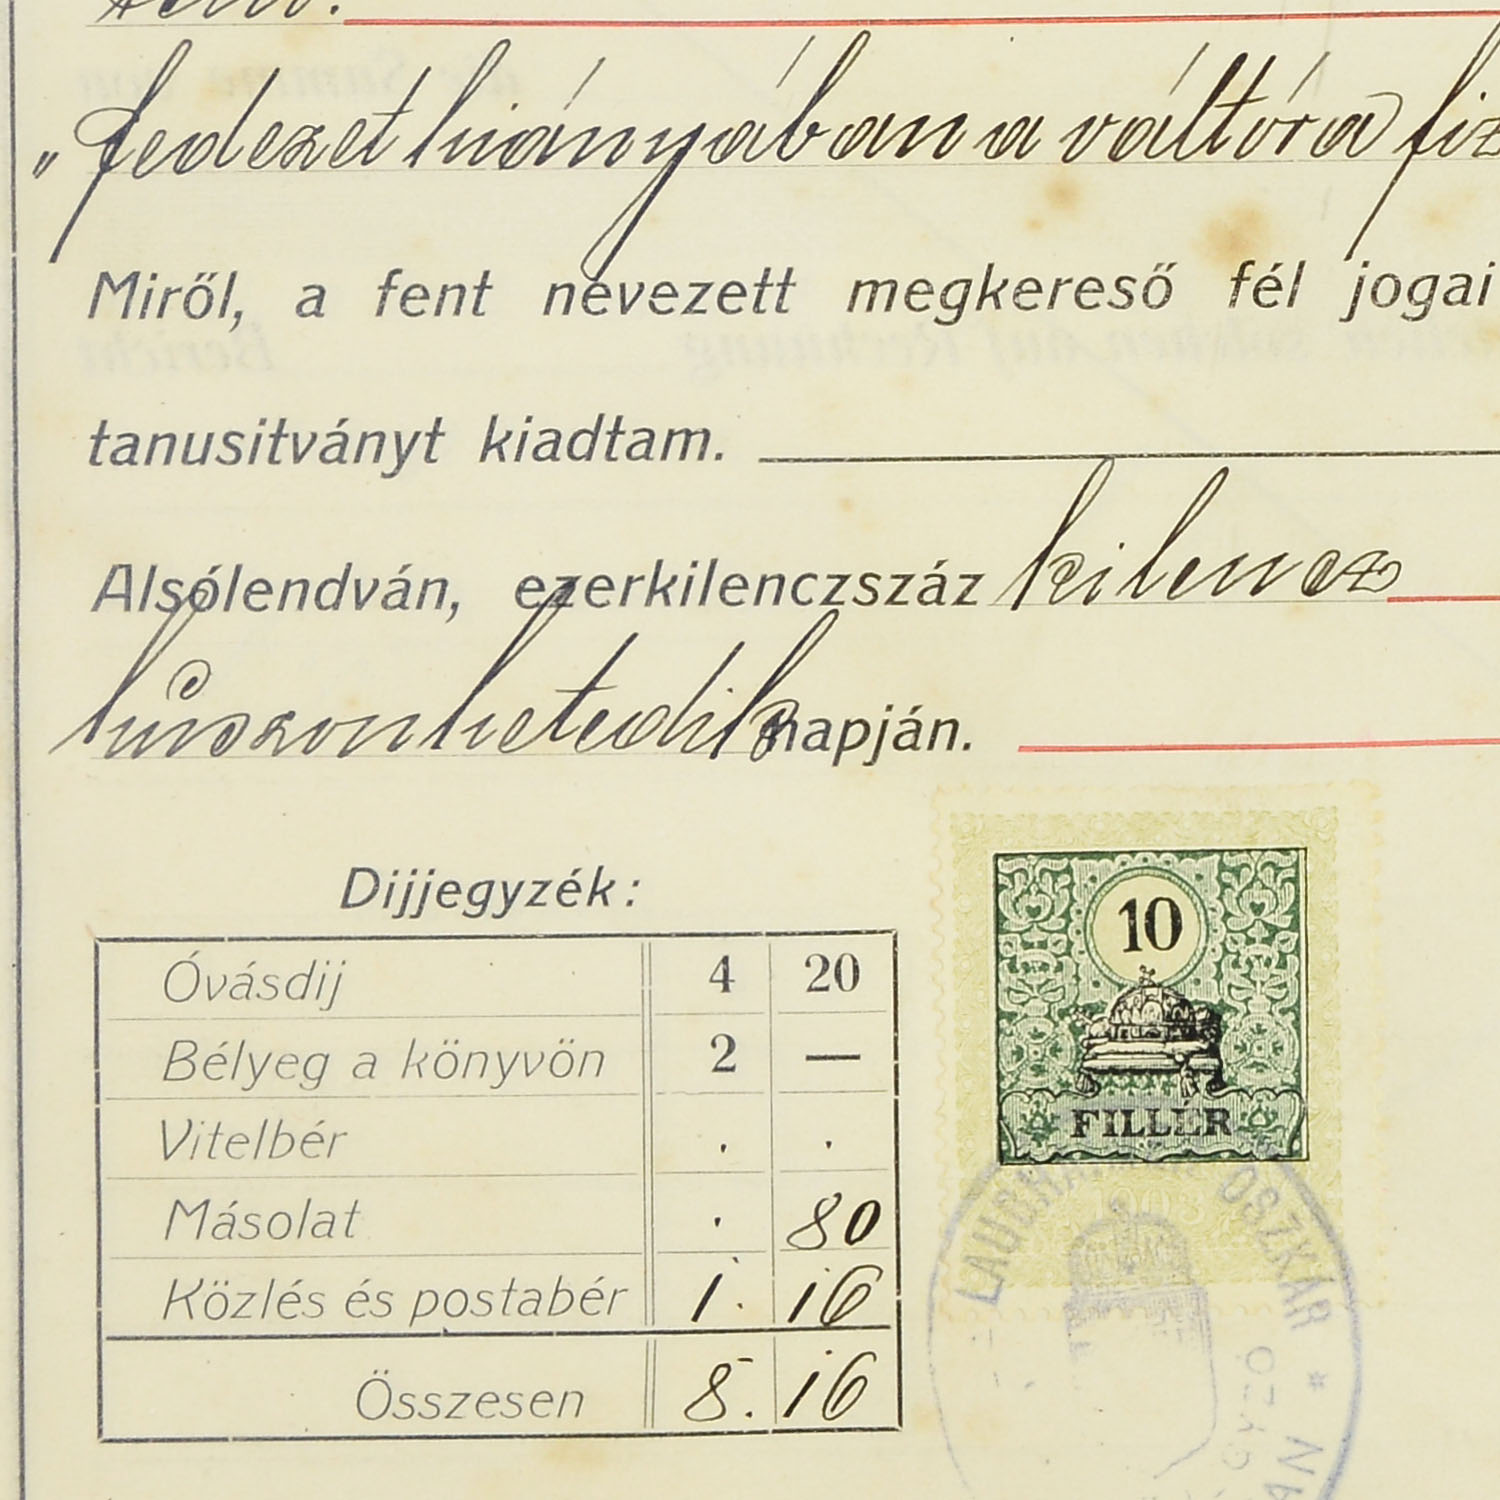 „fedezet hiányában a váltóra fiz
Miről, a fent nevezett megkereső fél jogai
tanusitványt kiadtam.
Alsólendván, ezerkilenczszáz kilencz
húszonhetedik napján.
Dijjegyzék:
Óvásdij 4 20
Bélyeg a könyvön 2 —
Vitelbér . .
Másolat . 80
Közlés és postabér 1. 16
Összesen 8. 16
10
FILLÉR
1903
OSZKÁR *